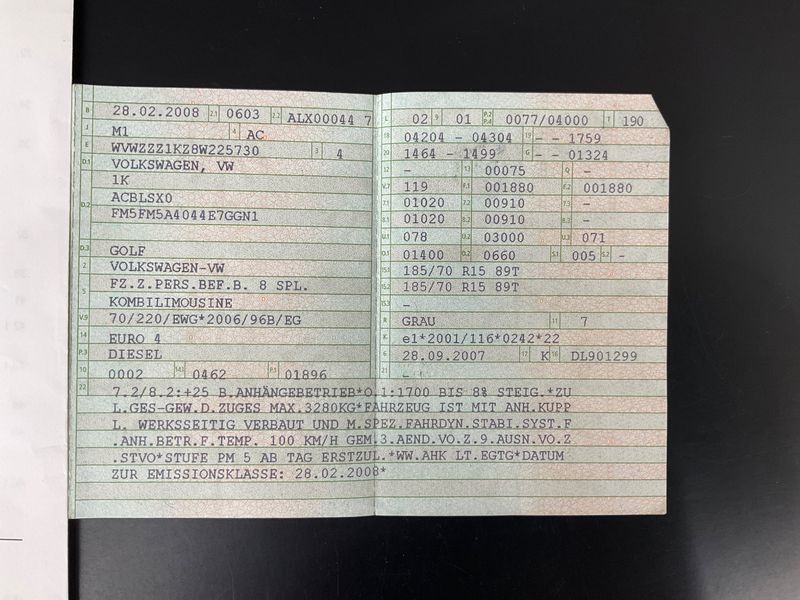 B 28.02.2008 2.1 0603 2.2 ALX00044 7
J M1 4 AC
E WVWZZZ1KZ8W225730 3 4
D.1 VOLKSWAGEN, VW
1K
D.2 ACBLSX0
FM5FM5A4044E7GGN1
D.3 GOLF
2 VOLKSWAGEN-VW
5 FZ.Z.PERS.BEF.B. 8 SPL.
KOMBILIMOUSINE
V.9 70/220/EWG*2006/96B/EG
14 EURO 4
P.3 DIESEL
10 0002 14.1 0462 P.1 01896
L 02 9 01 P.2 P.4 0077/04000 T 190
18 04204 - 04304 19 - - 1759
20 1464 - 1499 G - - 01324
12 - 13 00075 Q -
V.7 119 F.1 001880 F.2 001880
7.1 01020 7.2 00910 7.3 -
8.1 01020 8.2 00910 8.3 -
U.1 078 U.2 03000 U.3 071
O.1 01400 O.2 0660 S.1 005 S.2 -
15.1 185/70 R15 89T
15.2 185/70 R15 89T
15.3 -
R GRAU 11 7
K e1*2001/116*0242*22
6 28.09.2007 17 K 16 DL901299
21 -
22 7.2/8.2:+25 B.ANHÄNGEBETRIEB*O.1:1700 BIS 8% STEIG.*ZU
L.GES-GEW.D.ZUGES MAX.3280KG*FAHRZEUG IST MIT ANH.KUPP
L. WERKSSEITIG VERBAUT UND M.SPEZ.FAHRDYN.STABI.SYST.F
.ANH.BETR.F.TEMP. 100 KM/H GEM.3.AEND.VO.Z.9.AUSN.VO.Z
.STVO*STUFE PM 5 AB TAG ERSTZUL.*WW.AHK LT.EGTG*DATUM
ZUR EMISSIONSKLASSE: 28.02.2008*